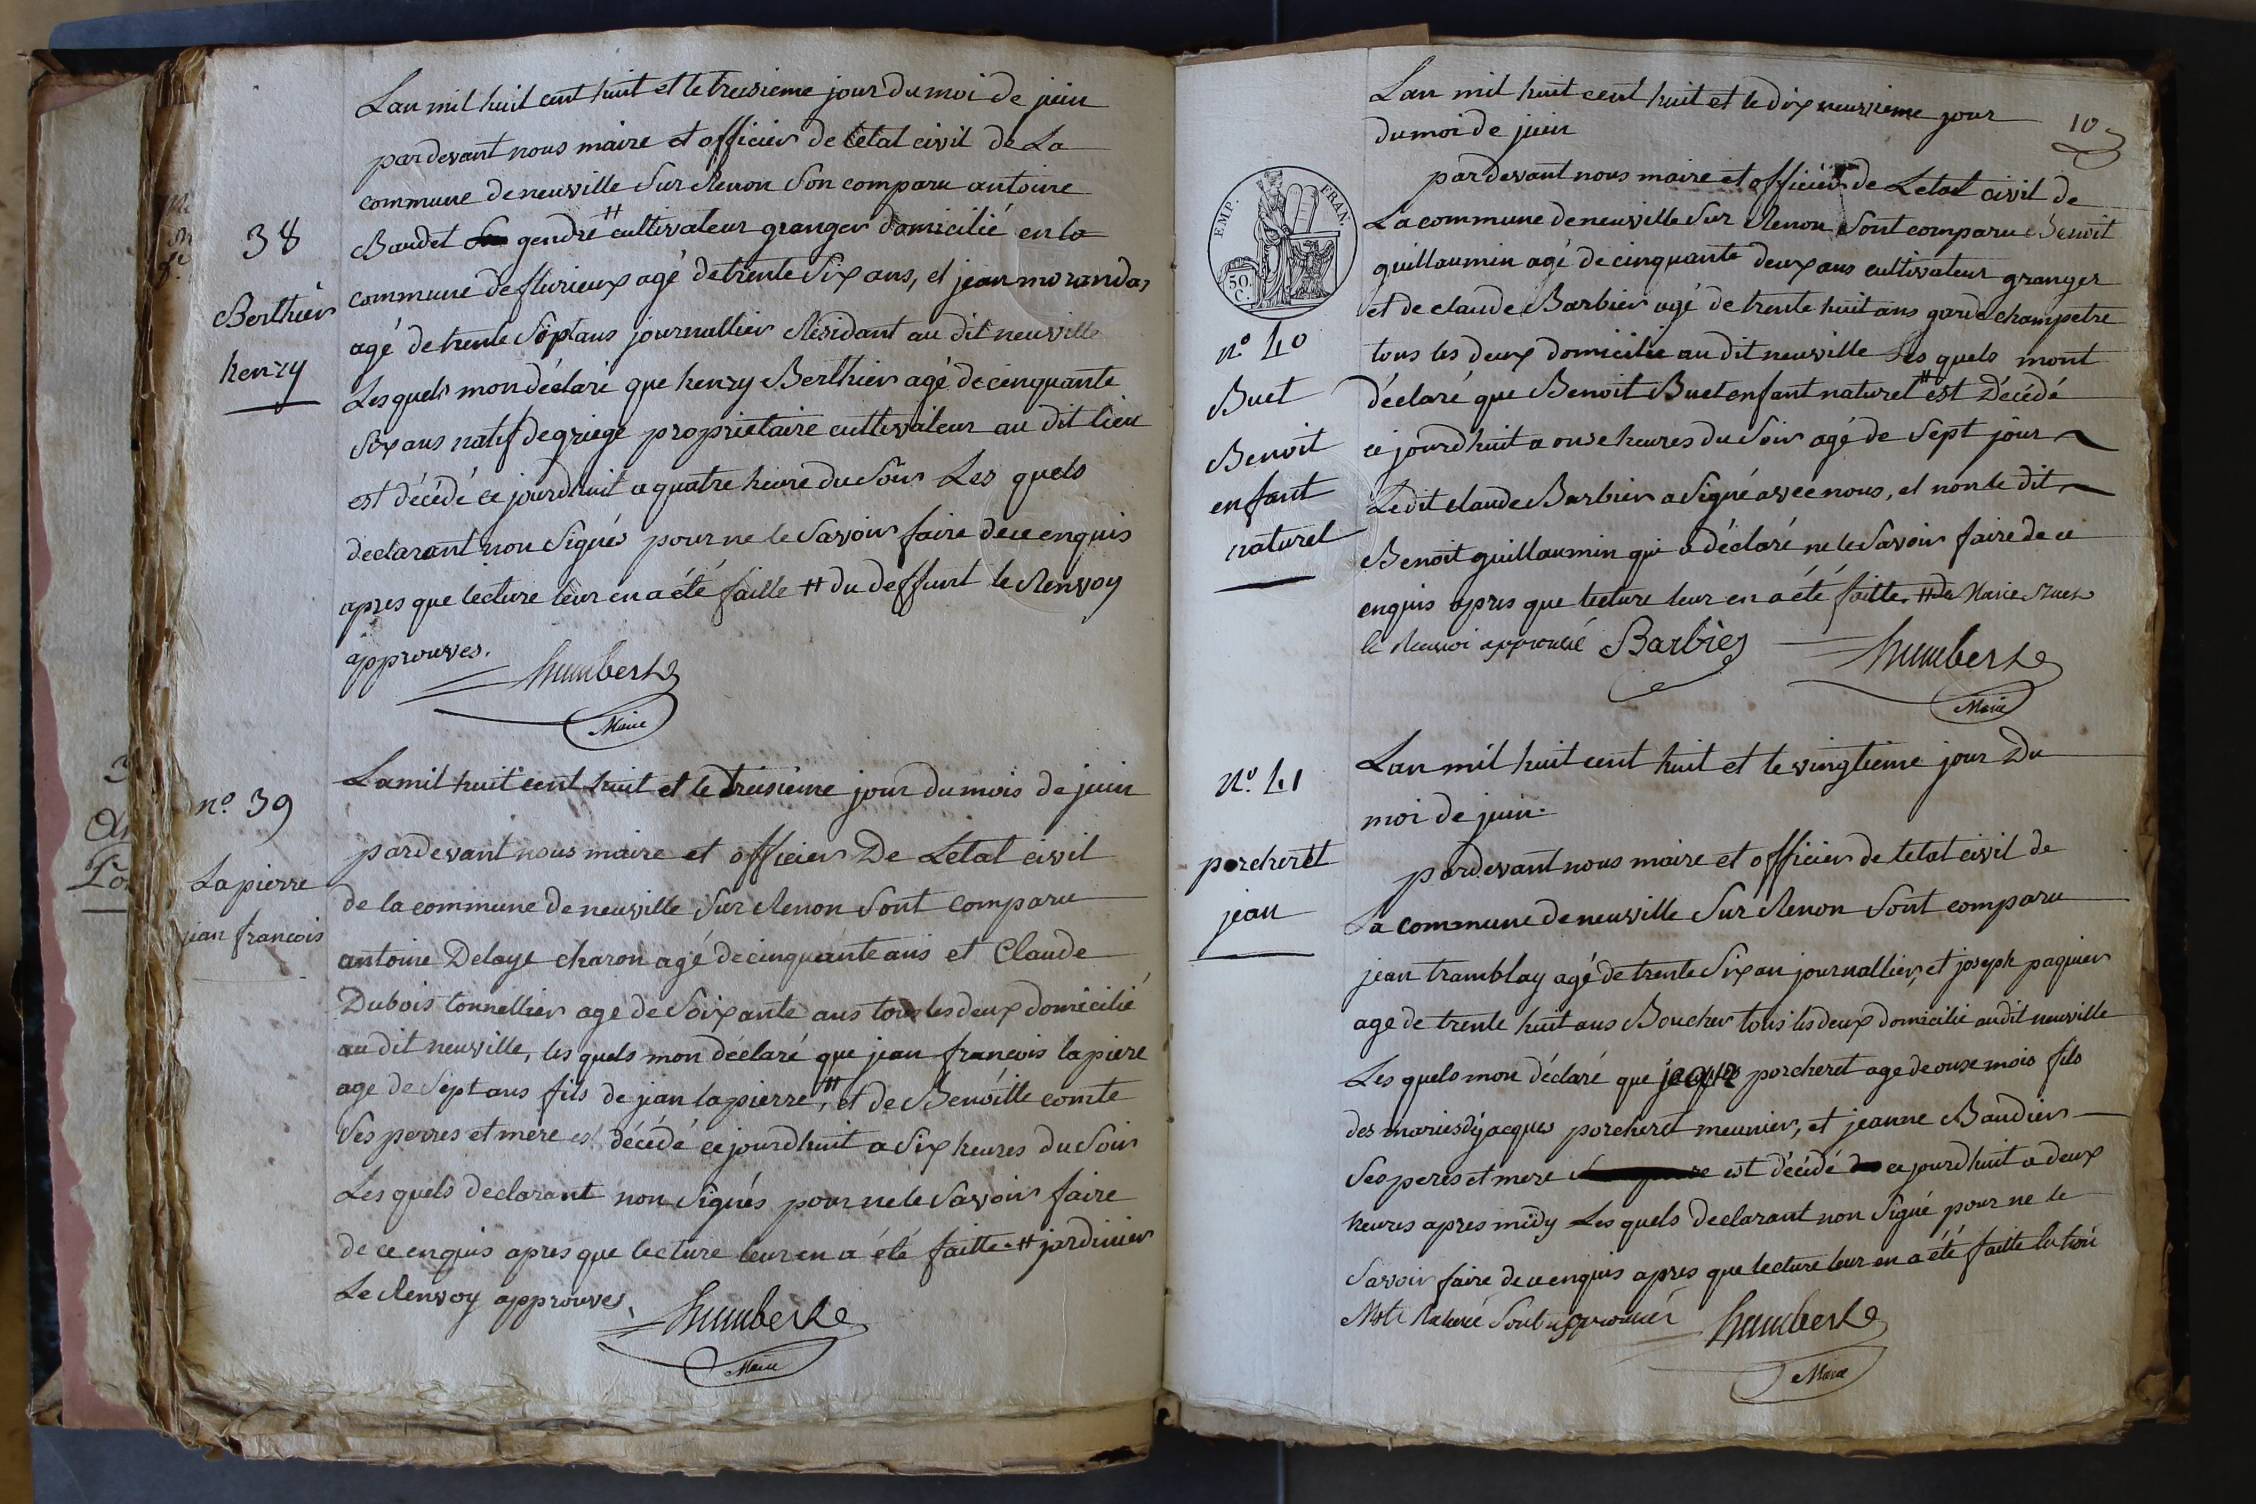 38
Berthier
henry
Lan mil huit cent huit et le treisieme jour du moi de juin
pardevant nous maire et officier de letat civil de La
commune de neuville Sur Renon Son comparu antoine
Baudet gendre # cultivateur granger domicilié en la
commune de flurieux agé de trente Six ans, et jean morandas
agé de trente Sept ans journallier Résidant au dit neuville
Les quels mon déclaré que henry Berthier agé de cinquante
Six ans natif de griege proprietaire cultivateur au dit lieu
est décédé ce jourdhuit a quatre heure du Soir Les quels
declarant non Signés pour ne le Savoir faire de ce enquis
apres que lecture leur en a été faitte # du deffunt le Renvoy
approuves.
humbert
Maire
n.º 39
Lapierre
jean francois
La mil huit cent huit et le treisieme jour du mois de juin
pardevant nous maire et officier De Letat civil
de la commune de neuville Sur Renon Sont comparu
antoine Delaye charon agé de cinquante ans et Claude
Dubois tonnellier age de Soixante ans tous les deux domicilié
au dit neuville, les quels mon déclaré que jean francois lapiere
age de Sept ans fils de jean lapierre, # et de Benoitte comte
Ses perres et mere est décédé ce jourdhuit a Six heures du Soir
Les quels declarant non Signés pour ne le Savoir faire
de ce enquis apres que lecture leur en a été faitte. # jardinier
Le Renvoy approuves.
humbert
Maire
10
Lan mil huit cent huit et le dix neuvieme jour
du moi de juin
EMP. FRAN.
50. C.
n.º 40
Buet
Benoit
enfant
naturel
pardevant nous maire et officier de Letat civil de
La commune de neuville Sur Renon Sont comparu Benoit
guillaumin agé de cinquante deux ans cultivateur granger
et de claude Barbier agé de trente huit ans garde champetre
tous les deux domicilie au dit neuville Les quels mont
déclaré que Benoit Buet enfant naturel # est Décédé
ce jourdhuit a onse heures du Soir agé de Sept jour
Le dit claude Barbier a Signé avec nous, et non le dit
Benoit guillaumin qui a déclaré ne le Savoir faire de ce
enquis apres que lecture leur en a été faitte. # de Marie
le Renvoi approuvé Barbier
humbert
Maire
N.º 41
porcheret
jean
Lan mil huit cent huit et le vingtieme jour Du
moi de juin.
pardevant nous maire et officier de letat civil de
La commune de neuville Sur Renon Sont comparu
jean tramblay agé de trente Six an journallier, et joseph paquier
age de trente huit ans Boucher tous les deux domicilie au dit neuville
Les quels mon déclaré que porcheret age de onse mois fils
des maries dejacques porcheret meunier, et jeanne Baudier
Ses peres et mere est décédé ce jourdhuit a deux
heures apres midy Les quels declarant non Signé pour ne le
Savoir faire de ce enquis apres que lecture leur en a été faitte
Mots Raturé Sont approuvés
humbert
Maire